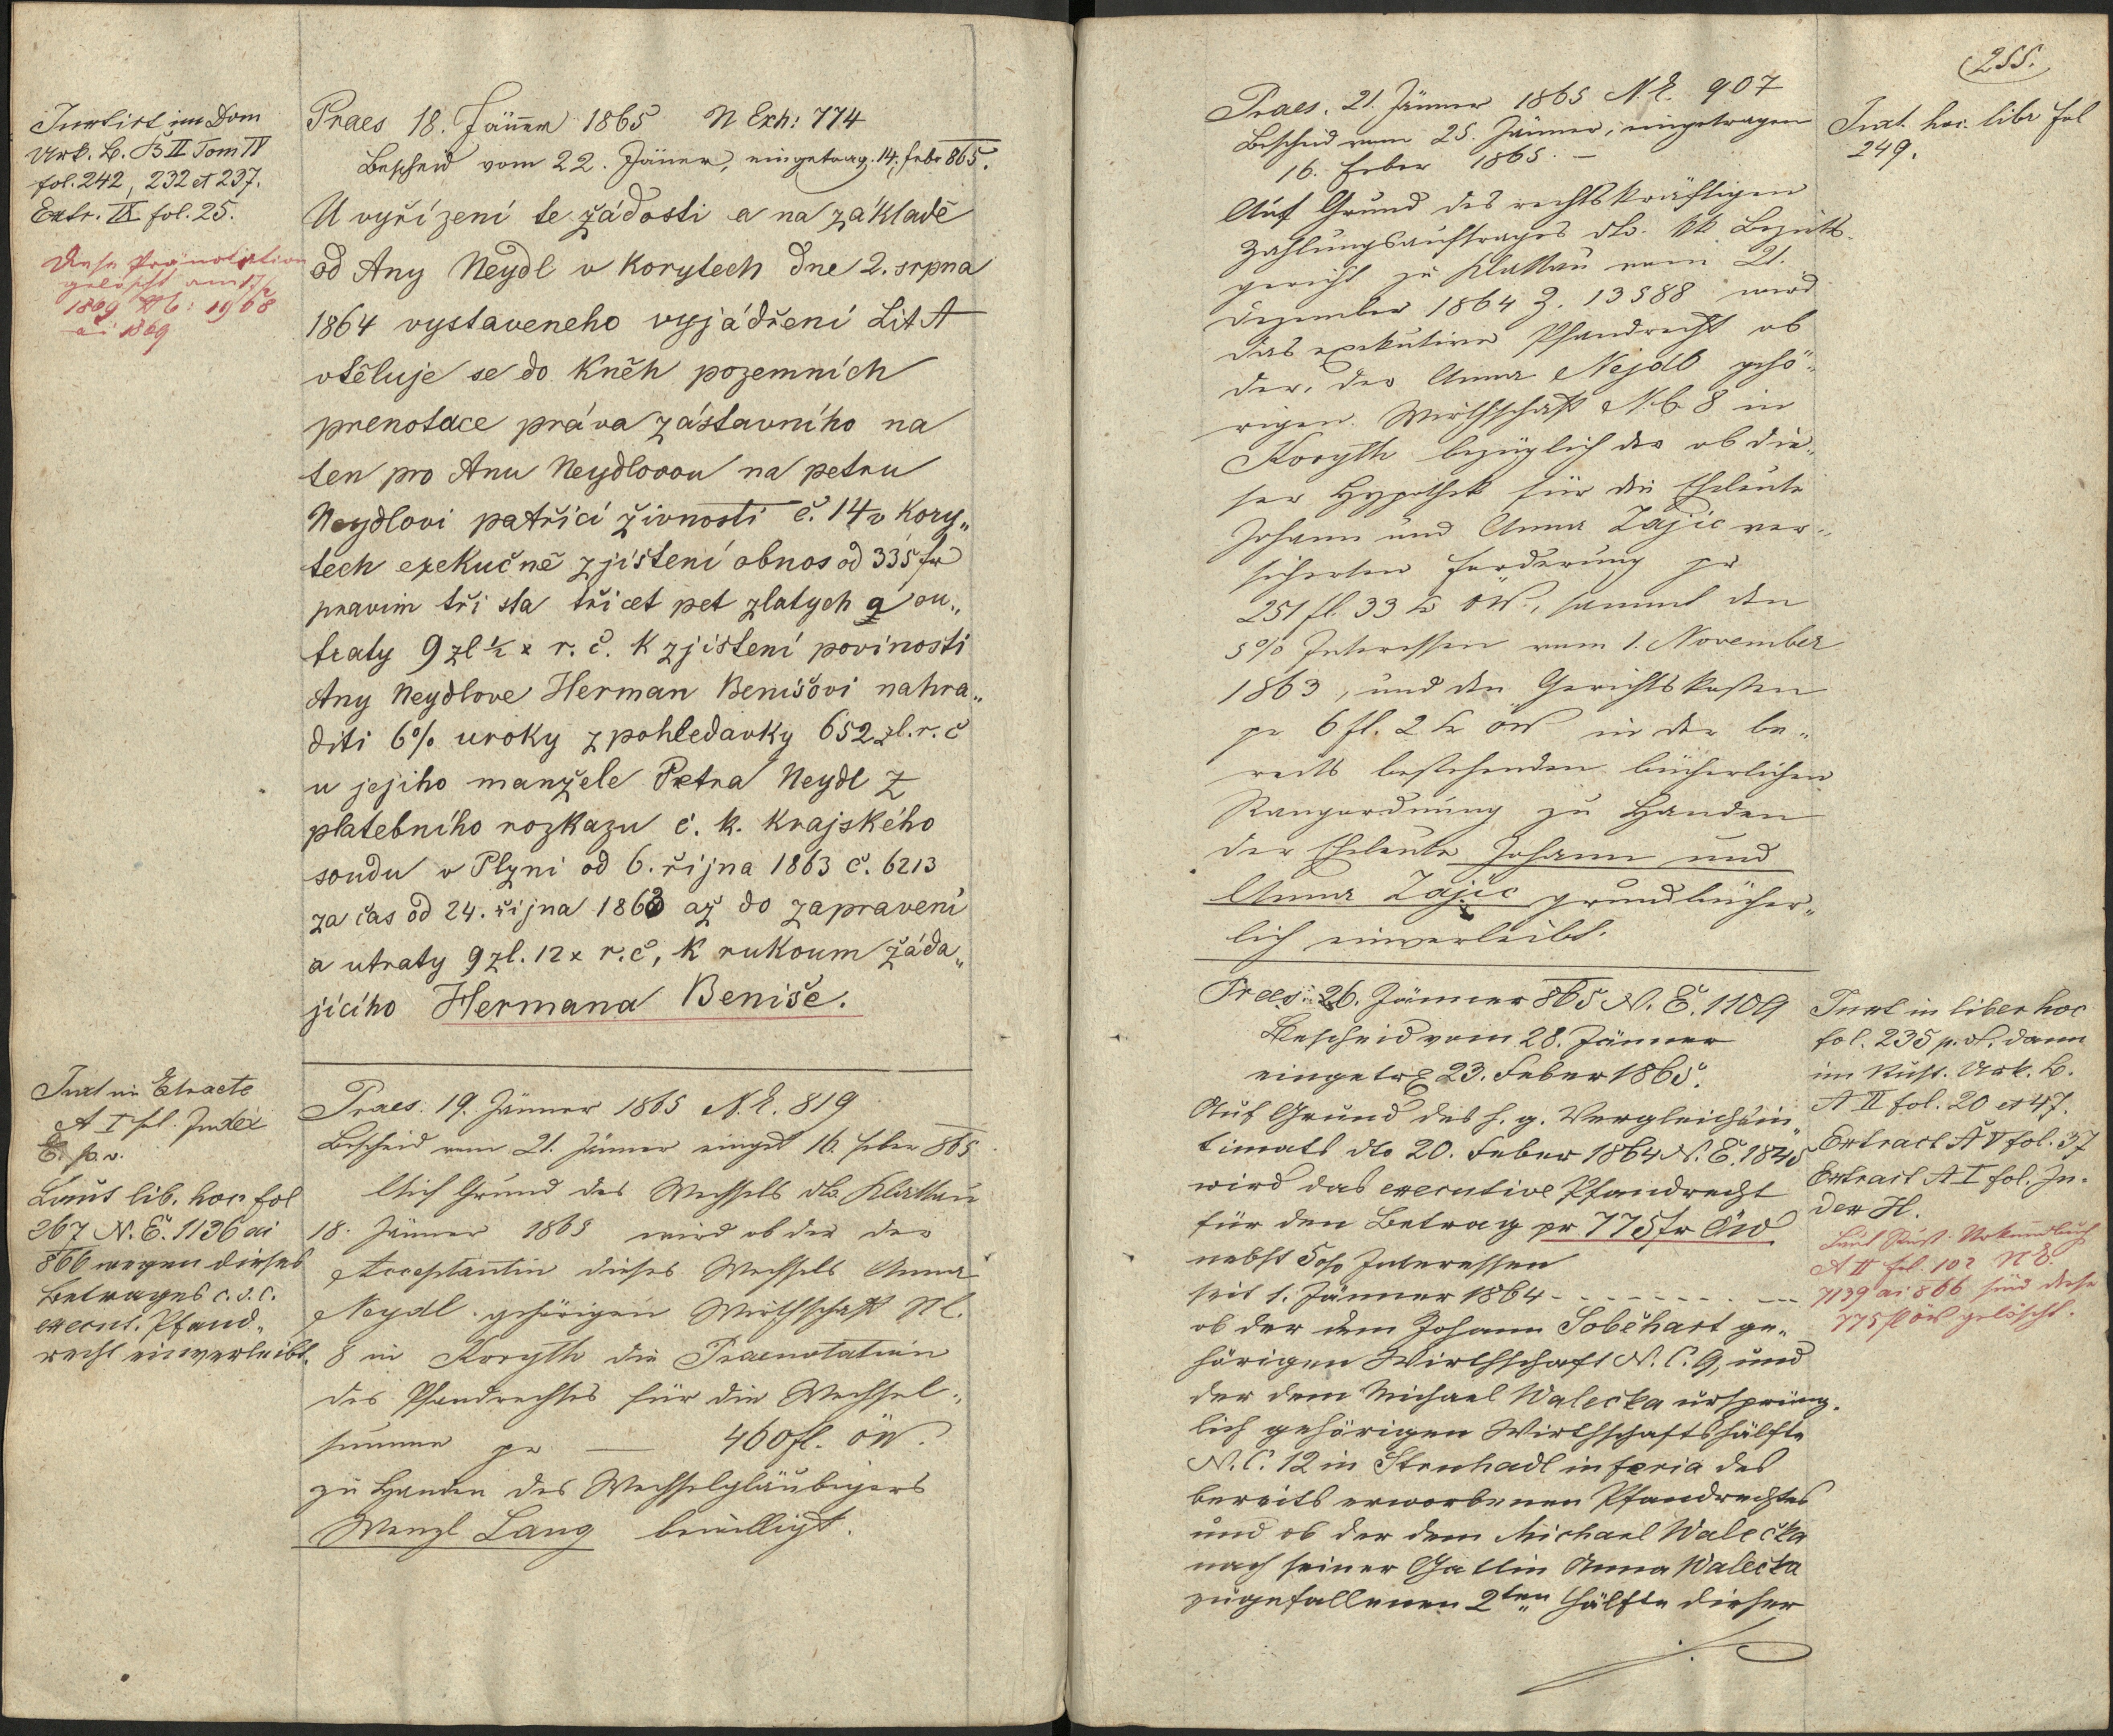 Inxtirt im Dom
Urk. B. B II Tom IV
fol. 242, 232 et 237.
Extr. IX fol. 25.
Diese Pränotation
gelöscht am
1869 1968
ai 1869
Praes 18. Jänner 1865 N Exh: 774
Bescheid vom 22. Jäner, eingetrag. 14. febr 865.
U vyřízení te žádosti a na základě
od Any Neydl v Korytech dne 2. srpna
1864 vystaveneho vyjádření Lit A
vtěluje se do Kněh pozemních
prenotace práva zástavního na
ten pro Anu Neydlovou na petru
Neydlovi patřící živnosti č. 14 v Kory„
tech exekučně zjištení obnos od 335 fr
pravim tři sta třicet pet zlatych a ou„
traty 9 zl ½ x r. č. k zjištení povinosti
Any Neydlove Herman Benišovi nahra„
diti 6% uroky z pohledavky 652 zl. r. č
u jejiho manžele Petra Neydl z
platebního rozkazu c. k. Krajského
soudu v Plzni od 6. řijna 1863 č. 6213
za čas od 24. řijna 1863 až do zapravení
a utraty 9 zl. 12 x r. č, k rukoum žáda„
jícího Hermana Beniše.
Inxt in Etracte
A I fol. Index
E. p. v.
Laut lib. hoc fol
267 N. E. 1136 ai
866 wegen dieses
Betrages c. s. c.
execut. Pfand„
recht einverleibt.
Praes. 19. Jänner 1865 N. E. 819
Bescheid vom 21. Jänner einget 16. feber 865
Auf Grund des Wechsels dto. Klattau
18. Jänner 1865 wird ob der der
Acceptantin dieses Wechsels Anna
Neydl gehörigen Wirthschaft NC.
8 in Koryth die Praenotation
des Pfandrechtes für die Wechsel„
summe pr — 460 fl. öW.
zu Handen des Wechselgläubigers
Wenzl Lang bewilligt.
255.
Praes. 21. Jänner 1865 N E. 907
Bescheid vom 25. Jänner, eingetragen
16. Feber 1865. —
Auf Grund des rechtskräftigen
Zahlungsauftrages dto. kk Bezirks-
gericht zu Klattau vom 21.
Dezember 1864 Z. 13588 wird
das exekutive Pfandrecht ob
der, der Anna Nejdl gehö„
rigen Wirthschaft NC 8 in
Koryth bezüglich der ob die„
ser Hypothek für die Eheleute
Johann und Anna Zajic ver„
sicherten Forderung pr
251 fl. 33 kr öW., sammt den
5% Interessen vom 1. November
1863, und den Gerichtskosten
pr 6 fl. 2 kr öW in der be„
reits bestehenden bücherlichen
Rangordnung zu Handen
der Eheleute Johann und
Anna Zajic grundbücher„
lich einverleibt.
Inxt. hoc. libr fol
249.
Praes: 26. Jänner 865 N. E. 1109
Bescheid vom 28. Jänner
eingetrg 23. Feber 1865.
Auf Grund des h. g. Vergleichsin„
timats dto 20. Feber 1864 N. E. 1845
wird das executive Pfandrecht
für den Betrag pr 775 fr öW
nebst 5% Interessen
seit 1. Jänner 1864 - - - - - - - -
ob der dem Johann Soběhart ge„
hörigen Wirthschaft N. C. 9, und
der dem Michael Walečka ursprüng„
lich gehörigen Wirthschaftshälfte
N. C. 12 in Strnhadl in feria des
bereits erworbenen Pfandrechtes
und ob der dem Michael Walečka
nach seiner Gattin Anna Walečka
zugefallenen 2ten Hälfte dieser
Inxt in liber hoc
fol. 235 p. v. dann
im Rust. Urk. B.
A II fol. 20 et 47.
Extract A V fol. 37
Extract A I fol. In-
dex H.
Laut Rust. Urkundbuch
A II fol. 102 N E.
7139 ai 866 sind diese
775 fl öW gelöscht.